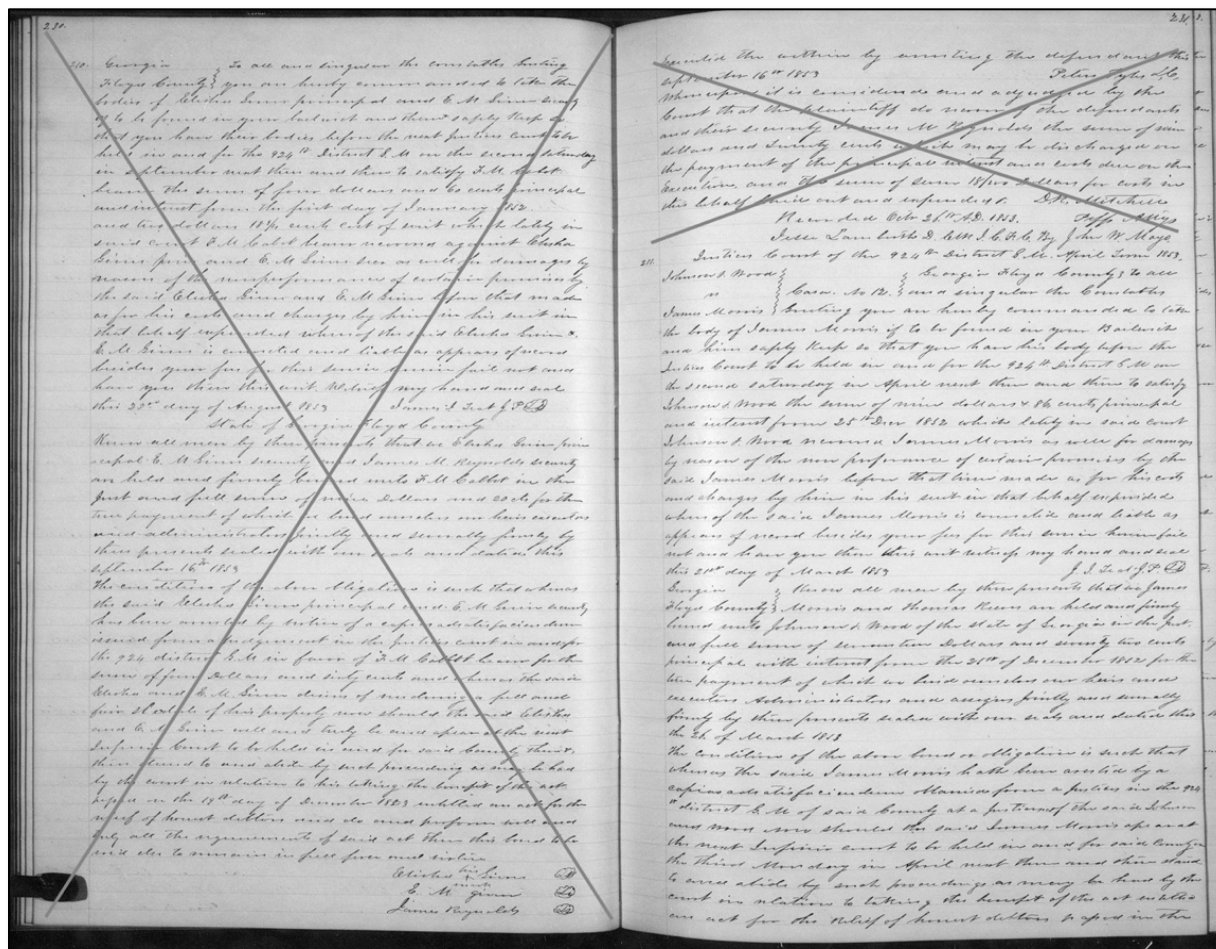 230.
210. Georgia } To all and singular the constables Greeting
Floyd County } you are hereby commanded to take the
bodies of Elisha Ginn principal and E M Ginn security
if to be found in your bailwick and them safely Keep so
that you have their bodies before the next Justices Court to be
held in and for the 924th District G. M on the second saturday
in September next then and there to satisfy F. M. Cabot
bearer the sum of four dollars and 60 cents principal
and interest from the first day of January 1852
and two dollars 18¾ cents cost of suit which lately in
said court F. M Cabot bearer recovered against Elisha
Ginn prin and E. M Ginn secr as well for damages by
reason of the nonperformance of certain promises by
the said Elisha Ginn and E. M Ginn before that made
as for his costs and charges by him in his suit in
that behalf expended whereof the said Elisha Ginn &
E. M Ginn is convicted and liable as appears of record
besides your fees for this service herein fail not and
have you then this writ Witness my hand and seal
this 22nd day of August 1853 James J Teat J P
State of Georgia Floyd County
Know all men by these presents that we Elisha Ginn prin
cipal E. M Ginn security and James M. Reynolds security
are held and firmly bound unto F. M Cabbot in the
Just and full sum of nine Dollars and 20 cts for the
true payment of which we bind ourselves our heirs executors
and administrators jointly and severally firmly by
these presents sealed with our seals and dated this
September 16th 1853
The condition of the above Obligation is such that whereas
the said Elisha Ginn principal and E. M Ginn security
has been arrested by virtue of a capias ad satisfaciendum
issued from a Judgement in the Justices court in and for
the 924 district G. M in favor of F. M Cabbot bearer for the
sum of four Dollars and sixty cents and whereas the said
Elisha and E. M. Ginn desires of rendering a full and
fair Schedule of his property now should the said Elisha
and E. M Ginn well and truly be and apear at the next
Inferior Court to be held in and for said County then &
there stand to and abide by such proceeding as may be had
by the court in relation to his taking the benefit of the act
passed on the 19th day of December 1823 entitled an act for the
relief of honest debtors and do and perform well and
truly all the requirements of said act then this bond to be
void else to remain in full force and virtue
Elisha his mark Ginn
E. M Ginn
James Reynolds
231.
Executed the within by arresting the defendant this
September 16th 1853 Peter
Whereupon it is considered and adjudged by the
Court that the plaintiff do recover of the defendants
and their security James M Reynolds the sum of nine
dollars and twenty cents which may be discharged on
the payment of the principal interest and costs due on this
Execution, and the sum of seven 18/100 Dollars for costs in
this behalf laid out and expended &. D. R. Mitchell
Recorded Octr 26th A.D. 1853. Plffs Attys
Jesse Lamberth D. Clk I. C. F. C. By John W Mays
211. Justices Court of the 924th District G. M. April Term 1853.
Johnson & Wood } } Georgia Floyd County } To all
vs } Casa. No 12. } and singular the Constables
James Morris } Greeting you are hereby commanded to take
the body of James Morris if to be found in your Bailiwick
and him safely Keep so that you have his body before the
Justices Court to be held in and for the 924th District G M on
the second saturday in April next then and there to satisfy
Johnson & Wood the sum of nine dollars & 86 cents principal
and interest from 25th Decr 1852 which lately in said court
Johnson & Wood recovered James Morris as well for damages
by reason of the non preformance of certain promises by the
said James Morris before that time made as for his costs
and charges by him in his suit in that behalf expended
whereof the said James Morris is convicted and liable as
appears of record besides your fees for this service herein fail
not and have you then this writ witness my hand and seal
this 21st day of March 1853 J. J. Teat J. P.
Georgia } Know all men by these presents that we James
Floyd County } Morris and Thomas are held and firmly
bound unto Johnson & Wood of the state of Georgia in the Just
and full sum of seventeen Dollars and seventy two cents
principal with interest from the 25th of December 1852 for the
true payment of which we bind ourselves our heirs and
executors Administrators and assigns jointly and severally
firmly by these presents sealed with our seals and dated this
the 26 of March 1853
The condition of the above bond or obligation is such that
whereas the said James Morris hath been arested by a
capias ad satisfaciendum from a Justices in the 924
th district G. M of said County at a Instance of the said Johnson
and Wood now should the said James Morris apear at
the next Inferior court to be held in and for said County on
the third Monday in April next then and there stand
to and abide by such proceedings as may be had by the
court in relation to taking the benefit of the act entitled
an act for the Relief of honest debtors in the